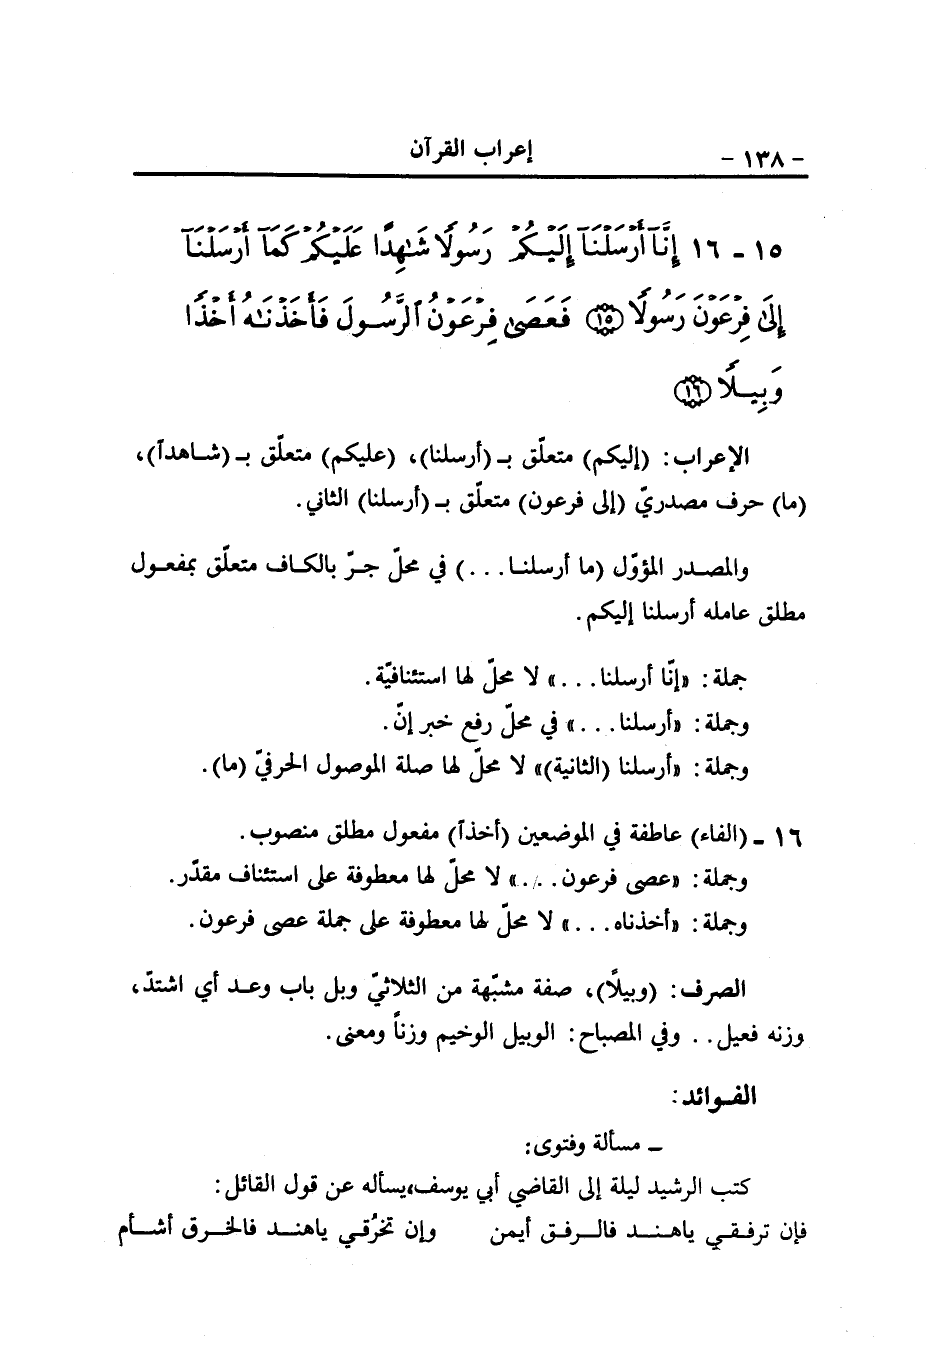 - ١٣٨ - إعراب القرآن
١٥ ـ ١٦ إِنَّآ أَرْسَلْنَآ إِلَيْكُمْ رَسُولًا شَٰهِدًا عَلَيْكُمْ كَمَآ أَرْسَلْنَآ
إِلَىٰ فِرْعَوْنَ رَسُولًا ﴿١٥﴾ فَعَصَىٰ فِرْعَوْنُ ٱلرَّسُولَ فَأَخَذْنَٰهُ أَخْذًا
وَبِيلًا ﴿١٦﴾
الإعراب: (إليكم) متعلّق بـ (أرسلنا)، (عليكم) متعلّق بـ (شاهداً)،
(ما) حرف مصدريّ (إلى فرعون) متعلّق بـ (أرسلنا) الثاني.
والمصدر المؤوّل (ما أرسلنا...) في محلّ جرّ بالكاف متعلّق بمفعول
مطلق عامله أرسلنا إليكم.
جملة: «إنّا أرسلنا...» لا محلّ لها استئنافيّة.
وجملة: «أرسلنا...» في محلّ رفع خبر إنّ.
وجملة: «أرسلنا (الثانية)» لا محلّ لها صلة الموصول الحرفيّ (ما).
١٦ ـ (الفاء) عاطفة في الموضعين (أخذاً) مفعول مطلق منصوب.
وجملة: «عصى فرعون...» لا محلّ لها معطوفة على استئناف مقدّر.
وجملة: «أخذناه...» لا محلّ لها معطوفة على جملة عصى فرعون.
الصرف: (وبيلاً)، صفة مشبّهة من الثلاثيّ وبل باب وعد أي اشتدّ،
وزنه فعيل.. وفي المصباح: الوبيل الوخيم وزناً ومعنى.
الفوائد:
ـ مسألة وفتوى:
كتب الرشيد ليلة إلى القاضي أبي يوسف، يسأله عن قول القائل:
فإن ترفقي ياهند فالرفق أيمن وإن تخرُقي ياهند فالخرق أشأم